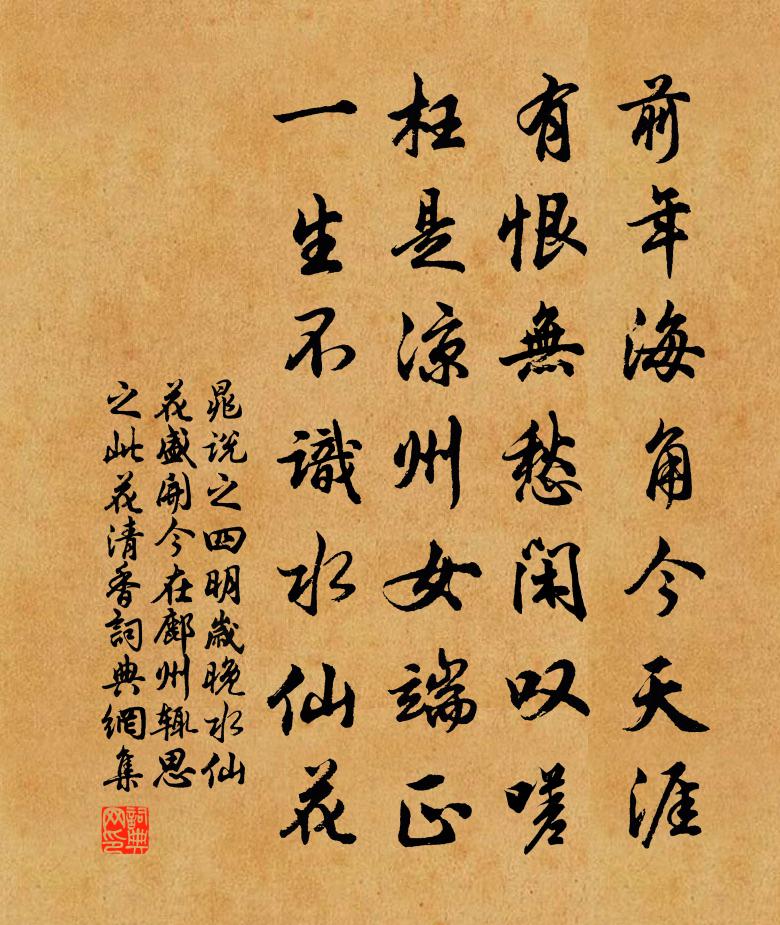 前年海角今天涯
有恨無愁閑叹嗟
枉是凉州女端正
一生不識水仙花
晁说之四明歲晚水仙
花盛開今在鄜州輒思
之此花清香詞典網集
詞典
网印